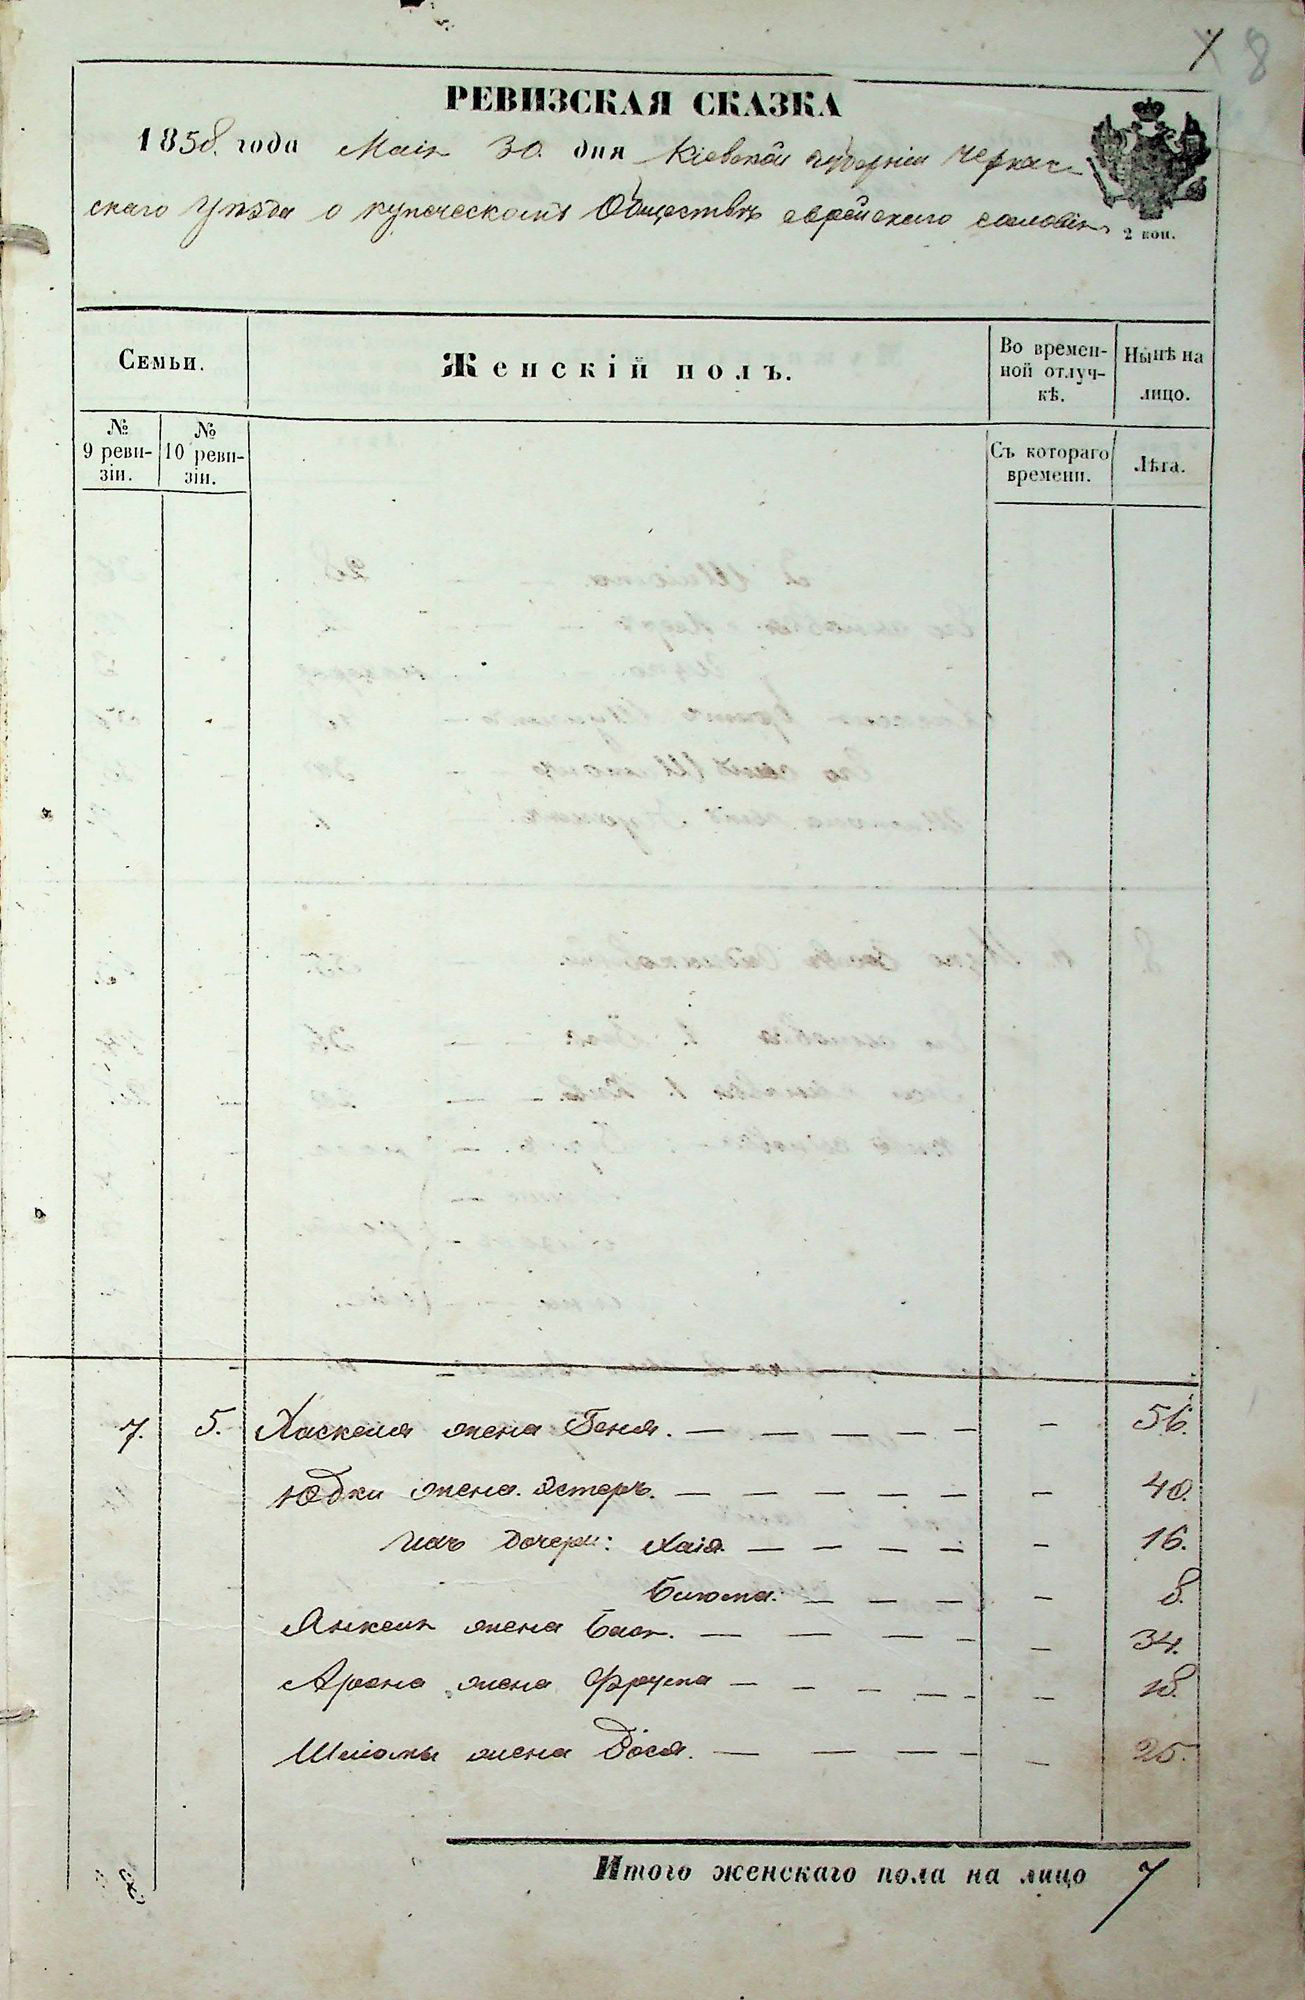 8
РЕВИЗСКАЯ СКАЗКА
1858. года Маія 30. дня Кіевской губерніи Черкас-
скаго Уѣзда о купеческомъ Обществѣ еврейскаго сословія
2 коп.
Семьи.
Женскій полъ.
Во времен-
ной отлуч-
кѣ.
Нынѣ на
лицо.
№
9 реви-
зіи.
№
10 реви-
зіи.
Съ котораго
времени.
Лѣта.
7. 5. Хаскеля жена Геня. — — — — — — 56.
Юдки жена Эстеръ. — — — — — — — 40.
Ихъ дочери: Хаія. — — — — — 16.
Блюма. — — — — — 8.
Янкеля жена Бася. — — — — — 34.
Арона жена Фрума — — — — — — 18.
Шліомы жена Дося. — — — — — 25.
Итого женскаго пола на лицо 7